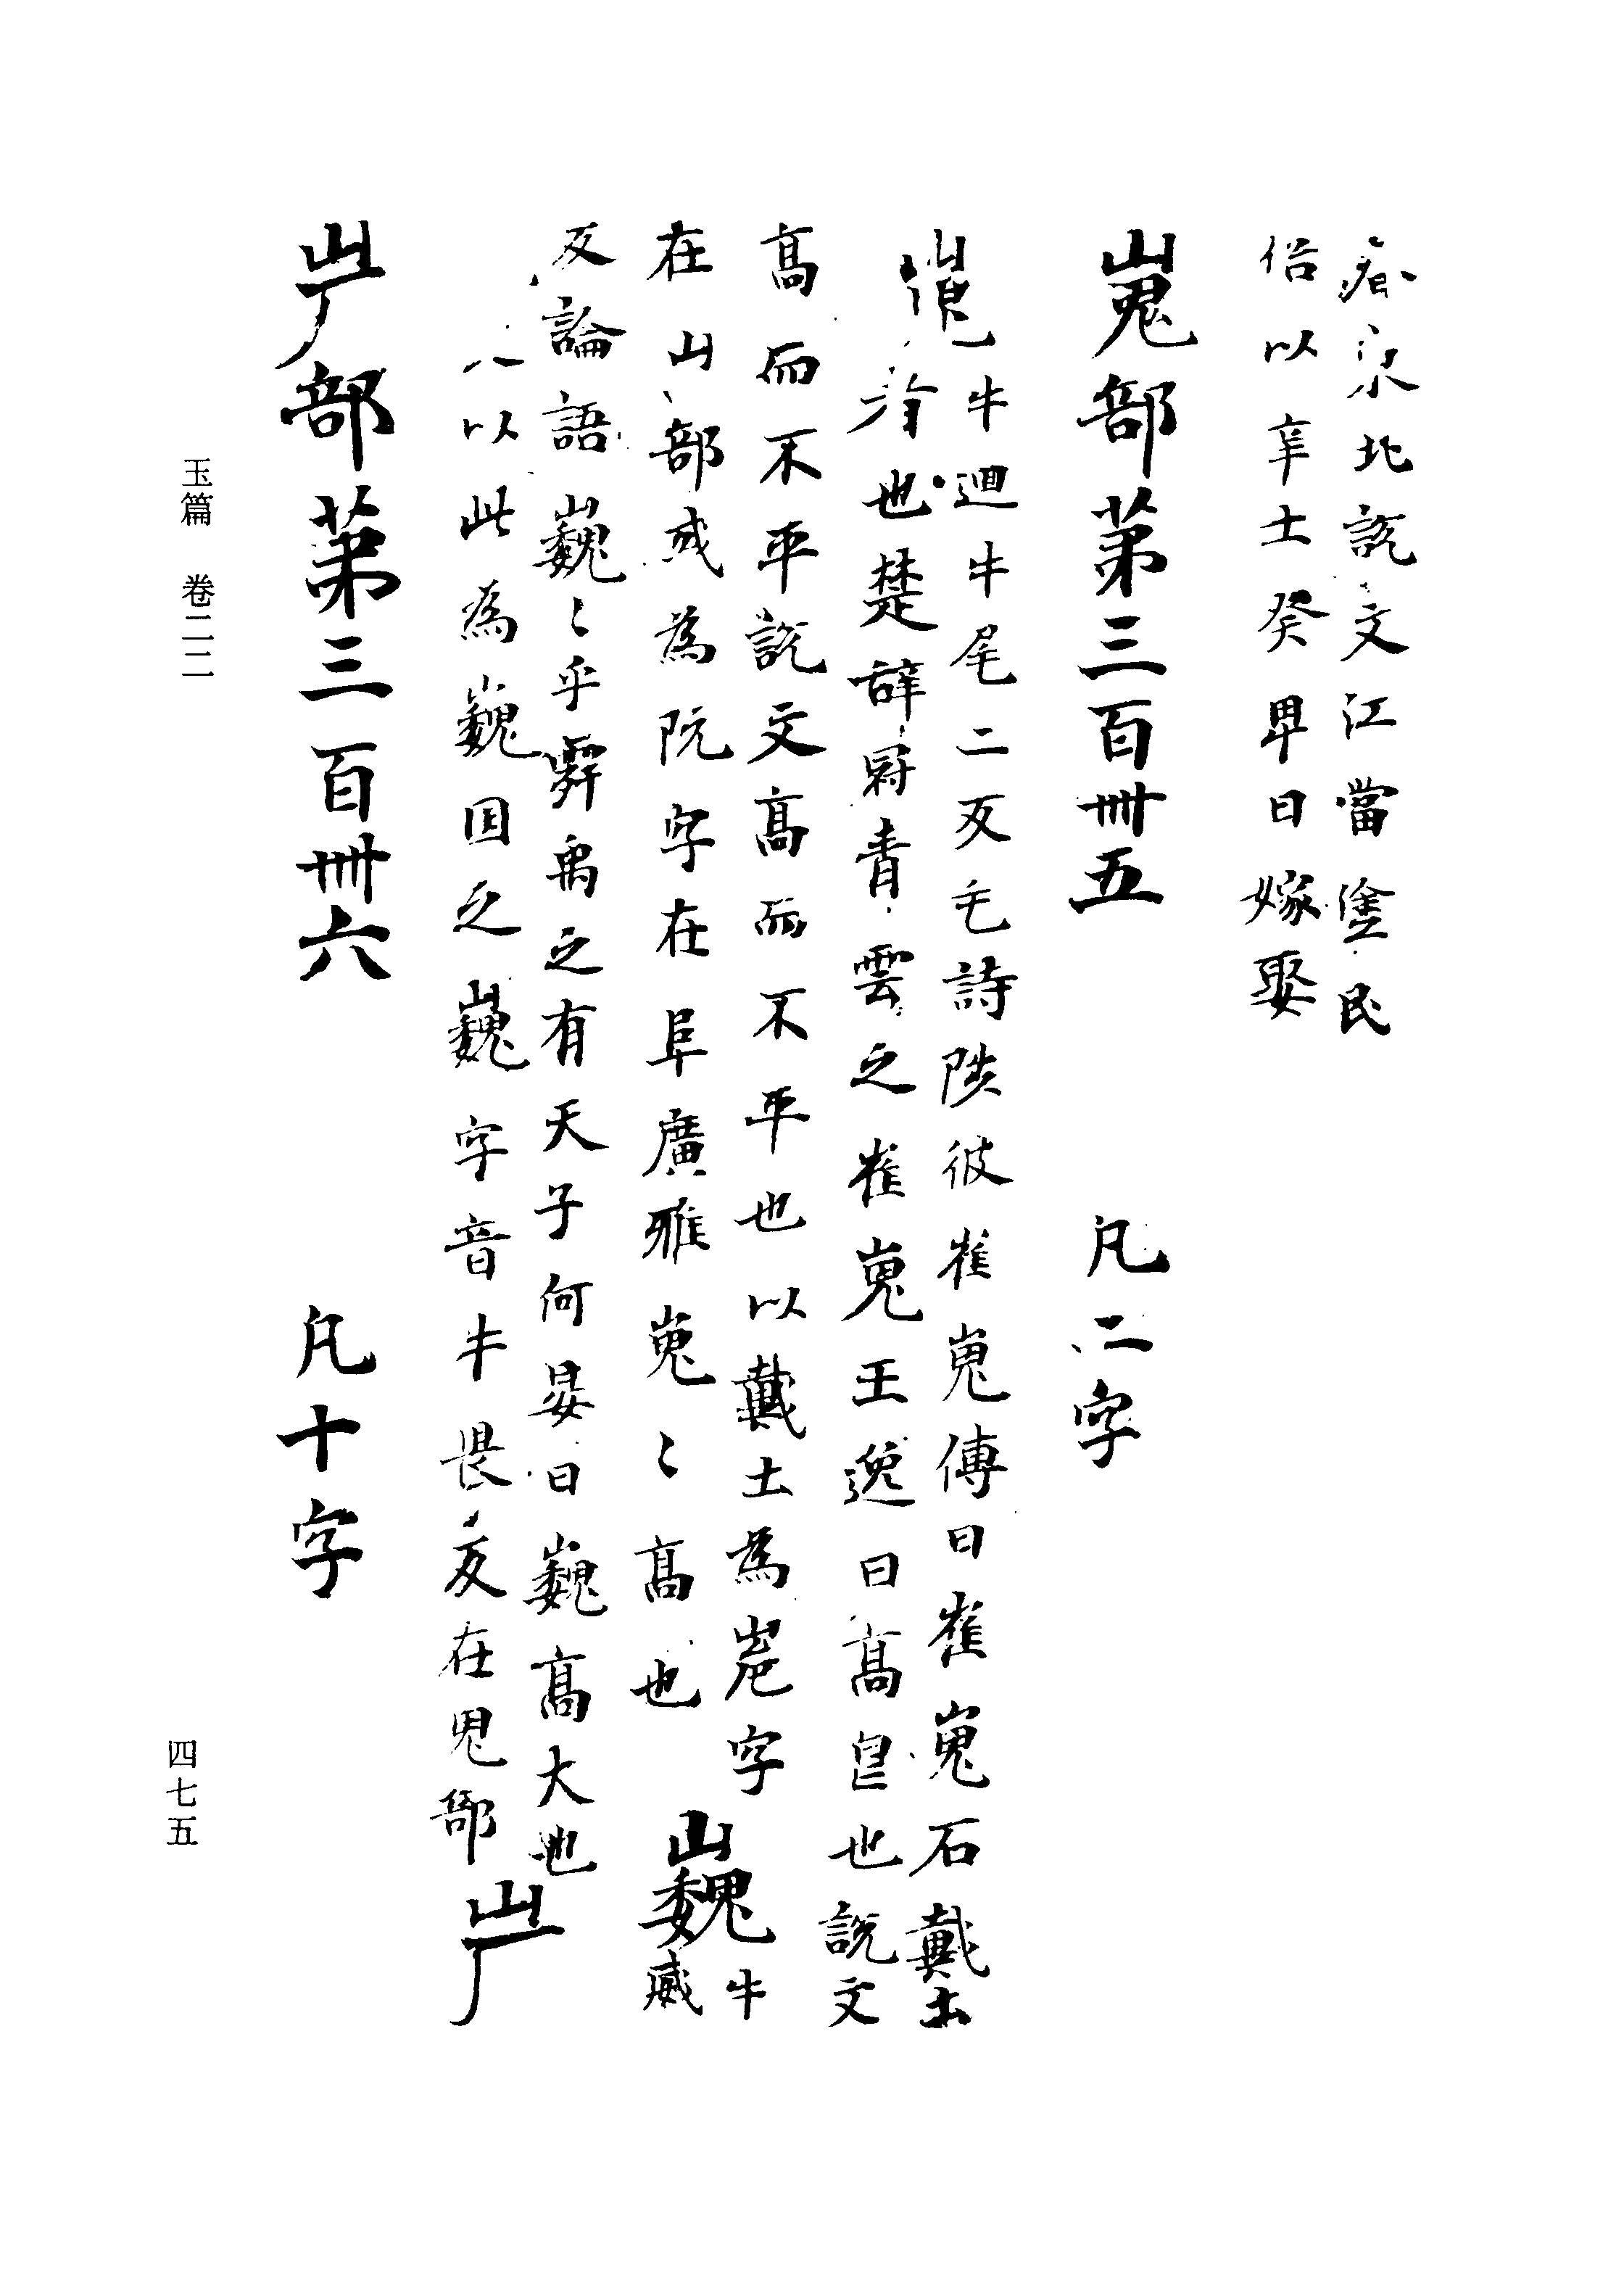 春、北說文江當塗民
俗以辛士癸卑日嫁娶
嵬部第三百卌五 凡二字
牛迴牛尾二反毛詩陟彼崔嵬傳曰崔嵬石戴土
也楚辭冠青雲之崔嵬王逸曰高皃也說文
高而不平說文高而不平也以戴土為字
在山部或為阮字在阜廣雅嵬〻高也
巍
牛
威
反論語巍〻乎舜禹之有天子何晏曰巍高大也
以此為巍国之巍字音牛畏反在鬼部
屵
屵部第三百卌六 凡十字
玉篇 卷二二
四七五